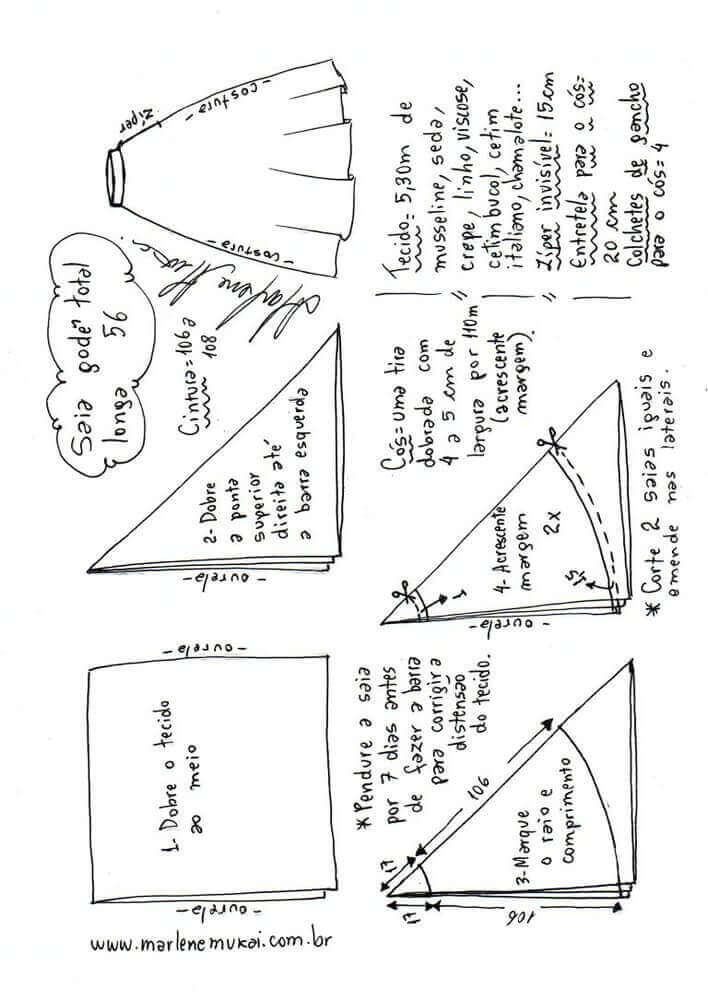 Saia godê total
longa 56
www.marlenemukai.com.br
- ourela -
- ourela -
1- Dobre o tecido
ao meio
- ourela -
2- Dobre
a ponta
superior
direita até
a barra esquerda
Cintura = 106 a
108
Marlene Mukai
Zíper
- costura -
- costura -
17
106
17
106
3- Marque
o raio e
comprimento
*Pendure a saia
por 7 dias antes
de fazer a barra
para corrigir a
distensão
do tecido.
- ourela -
1
4- Acrescente
margem
2x
1,5
* Corte 2 saias iguais e
emende nas laterais.
Cós= uma tira
dobrada com
4 a 5 cm de
largura por 110m
(acrescente
margem).
Tecido= 5,30m de
musseline, seda,
crepe, linho, viscose,
cetim bucol, cetim
italiano, chamalote...
Zíper invisível= 15cm
Entretela para o cós=
20 cm
Colchetes de gancho
para o cós= 4